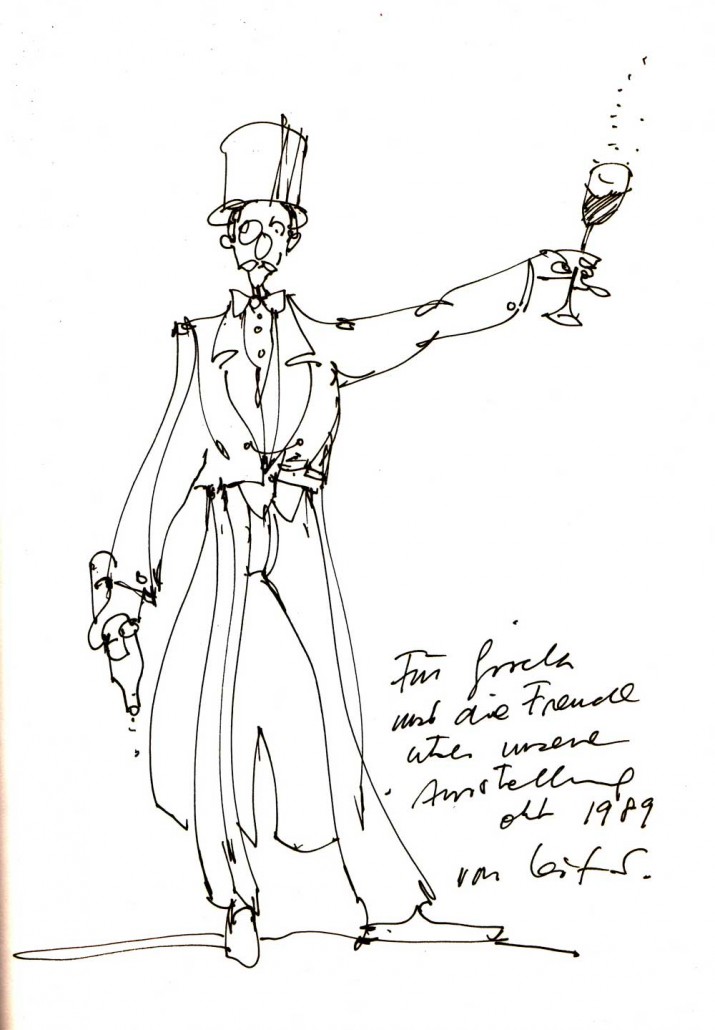 Für Gisela
und die Freude
über unsere
Ausstellung
okt 1989
von Leif S.